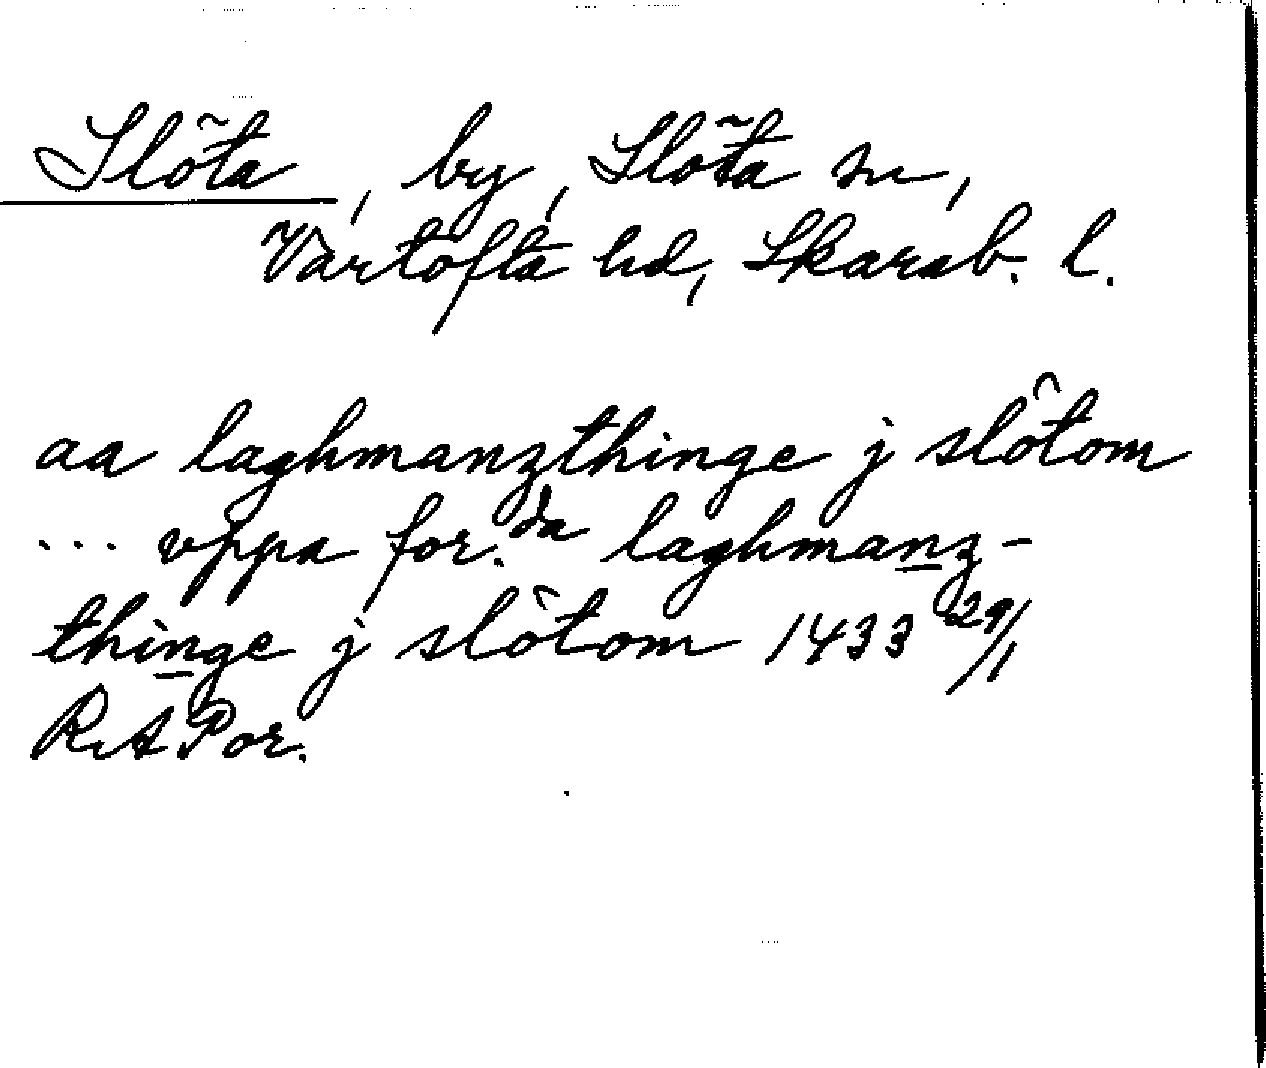 Slöta, by, Slöta sn,
Vartofta hd, Skarab. l.
aa laghmanzthinge j slôtom
... vppa for.da laghmanz-
thinge j slôtom 1433 29/1
RAPor.